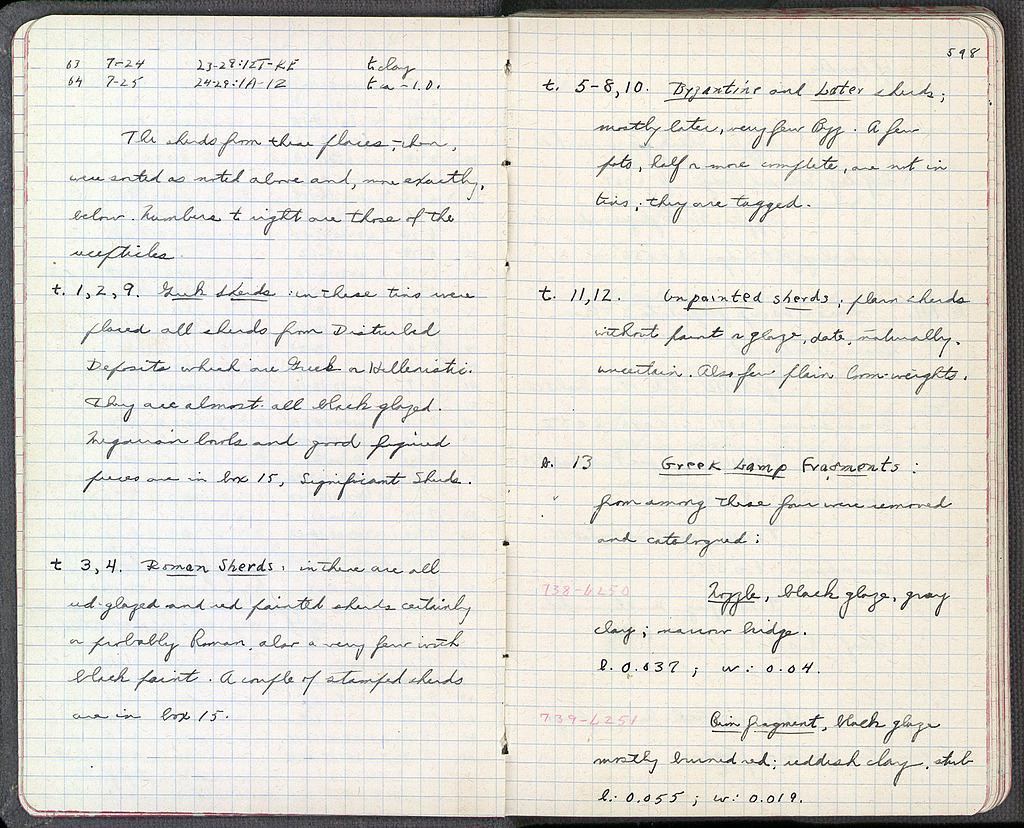 63 7-24 23-29:IΣT-KE t. clay
64 7-25 24-29:1A-1Z t. a -1.0.
The sherds from these places, then,
were sorted as noted above and, more exactly,
below. Numbers to right are those of the
recepticles.
t. 1, 2, 9. Greek Sherds: in these tins were
placed all sherds from Disturbed
Deposits which are Greek or Hellenistic.
They are almost all black glazed.
Megarian bowls and good figured
pieces are in box 15, Significant Sherds.
t 3, 4. Roman Sherds: in these are all
red-glazed and red painted sherds certainly
or probably Roman, also a very few with
black paint. A couple of stamped sherds
are in box 15.
598
t. 5-8, 10. Byzantine and Later sherds;
mostly later, very few Byz. A few
pots, half or more complete, are not in
tins; they are tagged.
t. 11, 12. Unpainted sherds; plain sherds
without paint or glaze, date, naturally,
uncertain. Also few plain loom-weights.
13 Greek Lamp Fragments:
from among these four were removed
and catalogued:
738-L250 Nozzle, black glaze, gray
clay; narrow bridge.
l: 0.037; w: 0.04.
739-L251 Rim fragment, black glaze
mostly burned red; reddish clay, stub
l: 0.055; w: 0.019.